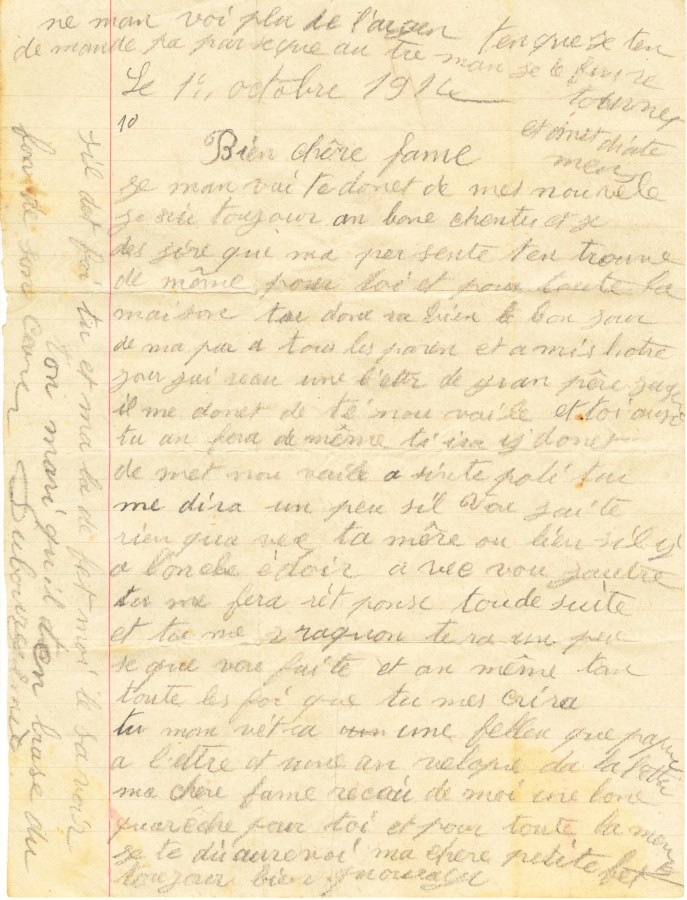 ne man voi plu de l'argen ten que se ten
de mande pa par se que au tre man se le fin se
Le 1er octobre 1914
tournes
et imet diate
men
10
Bien chère fame
je man vai te donet de mes nouvele
je sui toujour an bone chentu et je
des sire que ma per sente ten trouve
de même pour toi et pour toute la
maisone tu done ra bien le bon jour
de ma par a tous les paren et amis
jour jai reçu une letr de gran père
il me donet de te nou vaile et toi ausi
tu an fera de même ti ira y donet
de met nou vaile a sinte poli tu
me dira un peu sil vou faite
rien qua vec ta mêre ou bien sil y
a loncle édoir a vec vou
tu me fera rét ponse toude suite
et tu me raquon te ra un peu
se que vou faite et an même tan
toute les foi que tu mes crira
tu man vét ra une felleu que papie
a lettre et une an velope da la lettre
ma chère fame reçau de moi une bone
quarêche pour toi et pour toute la
je te di aurevoi ma chere petite
toujour bien
sil det fai tu et ma la de fet moi le sa voir
ton mari qu'il d'en brase du
fon de son cœur